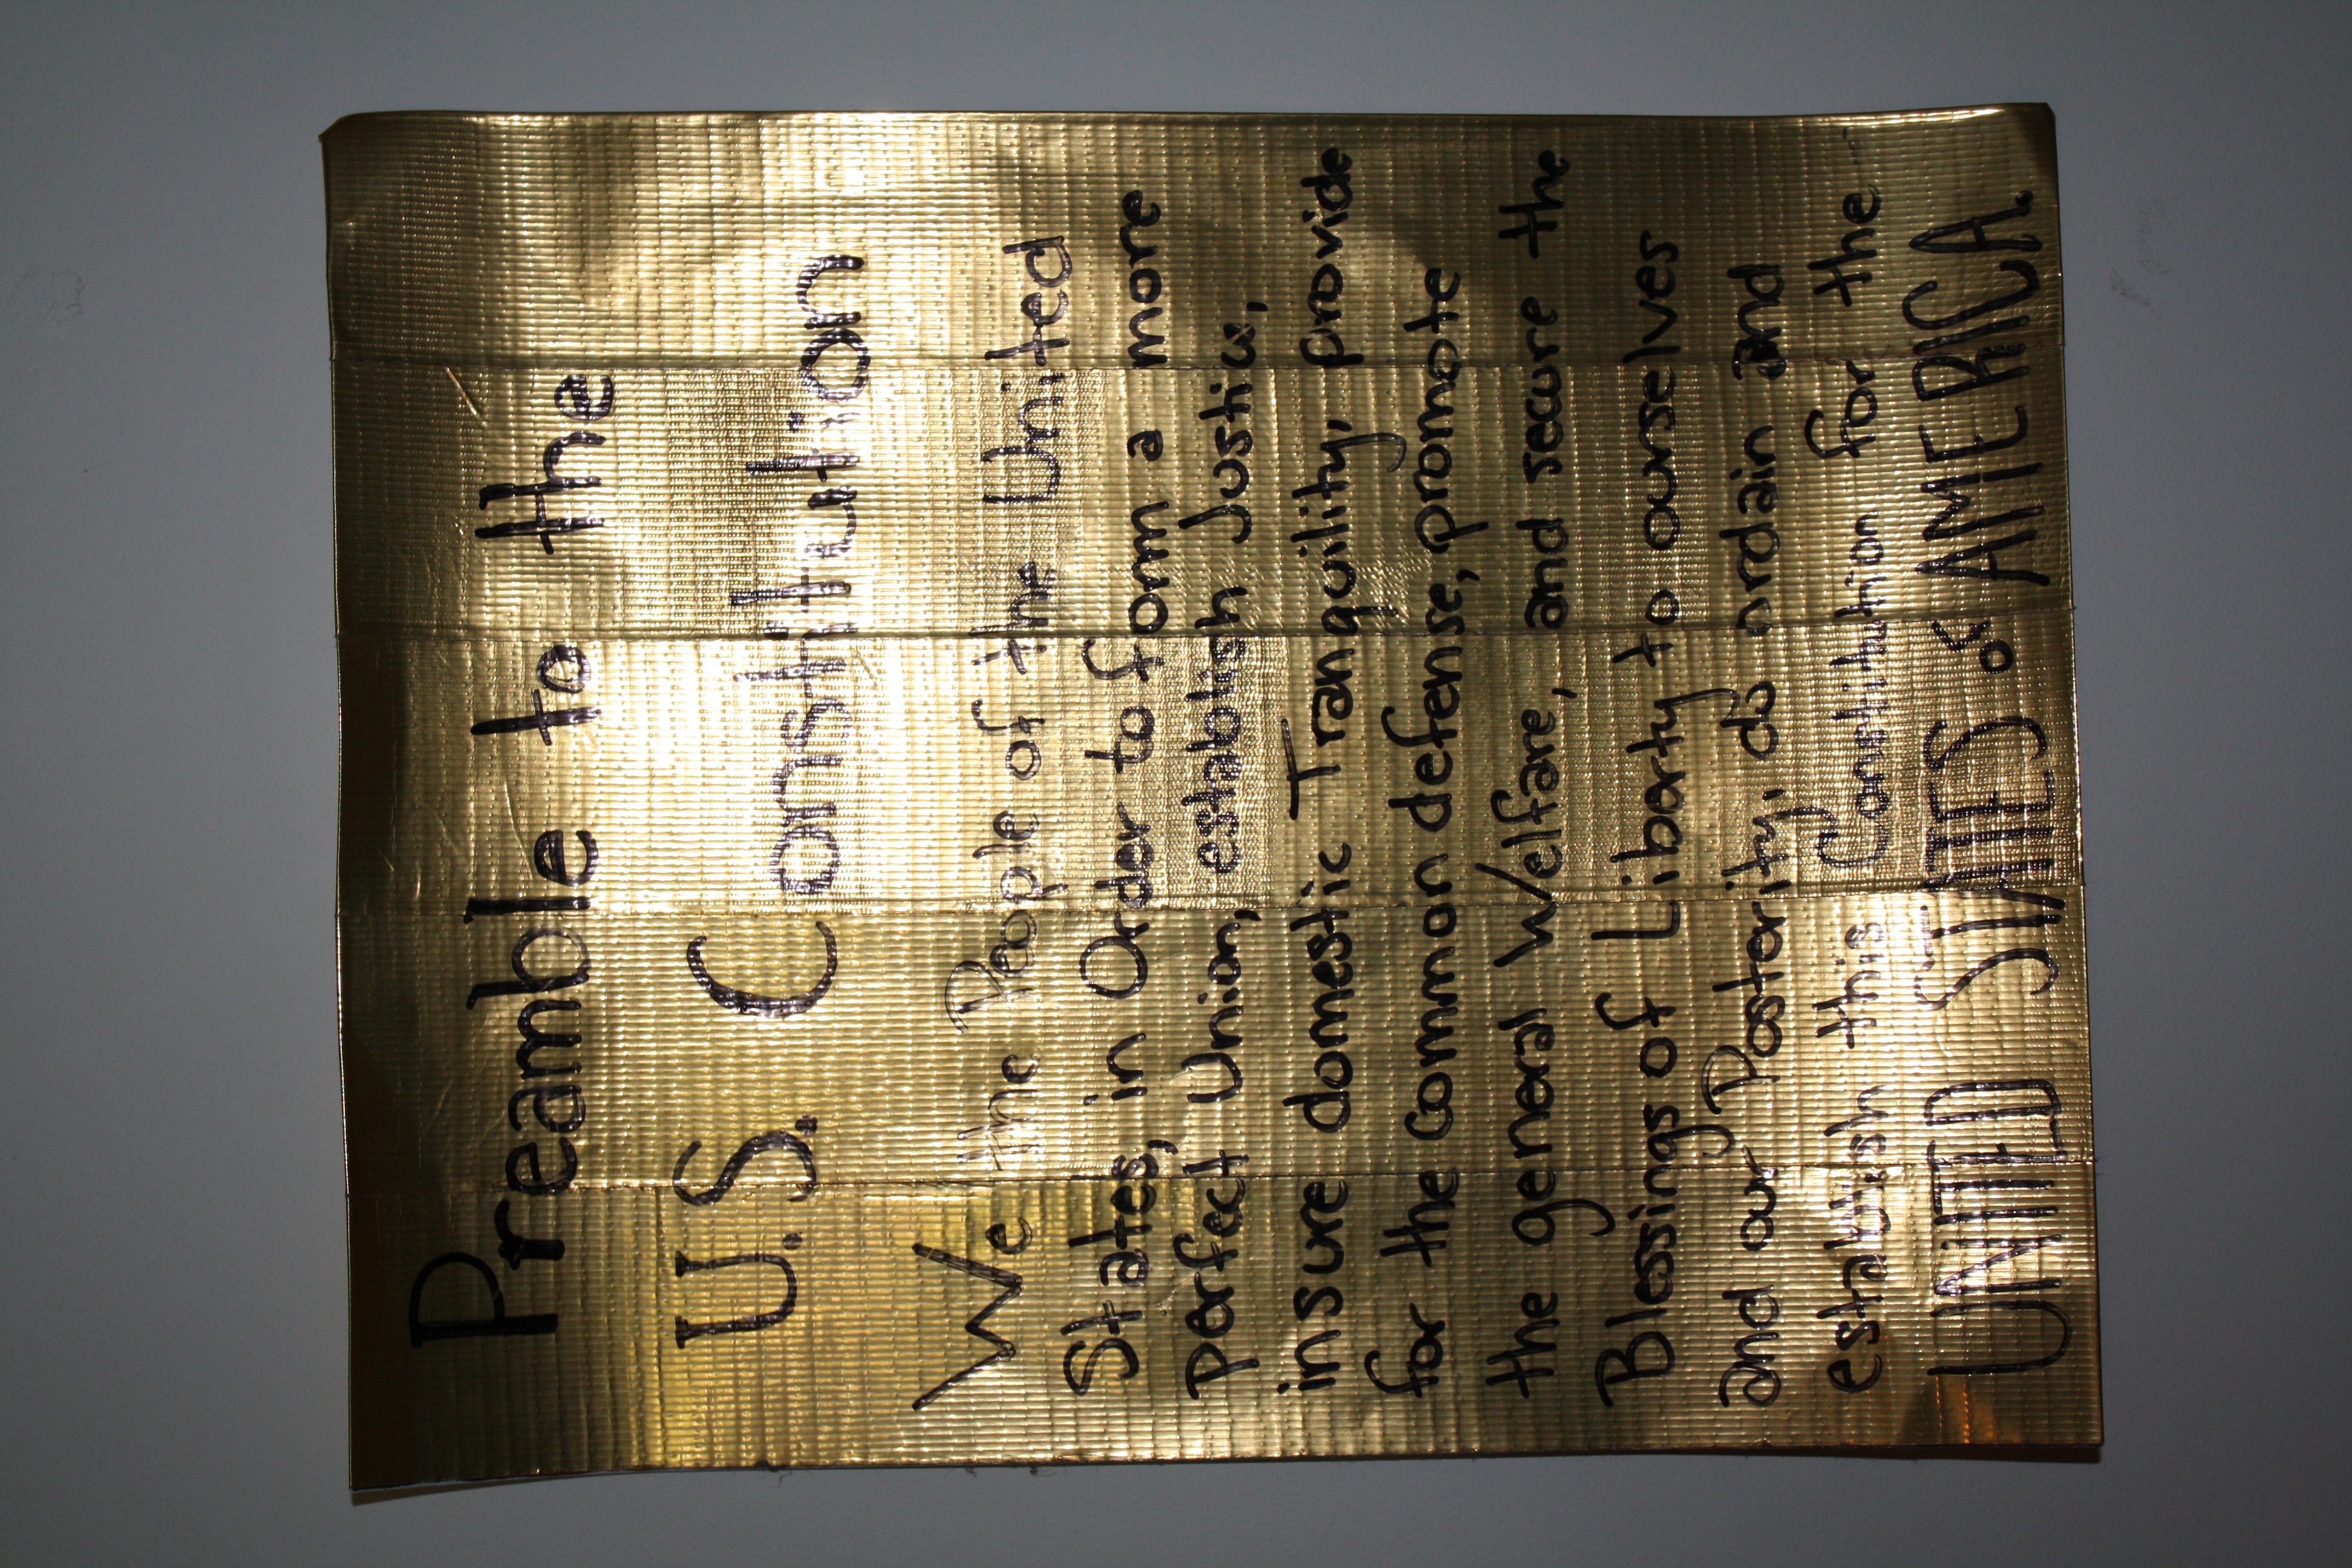 Preamble to the
U.S. Constitution
We the People of the United
States, in Order to form a more
perfect Union, establish Justice,
insure domestic Tranquility, provide
for the common defense, promote
the general Welfare, and secure the
Blessings of Libarty to ourselves
and our Posterity, do ordain and
establish this Constitution for the
UNITED STATES of AMERICA.